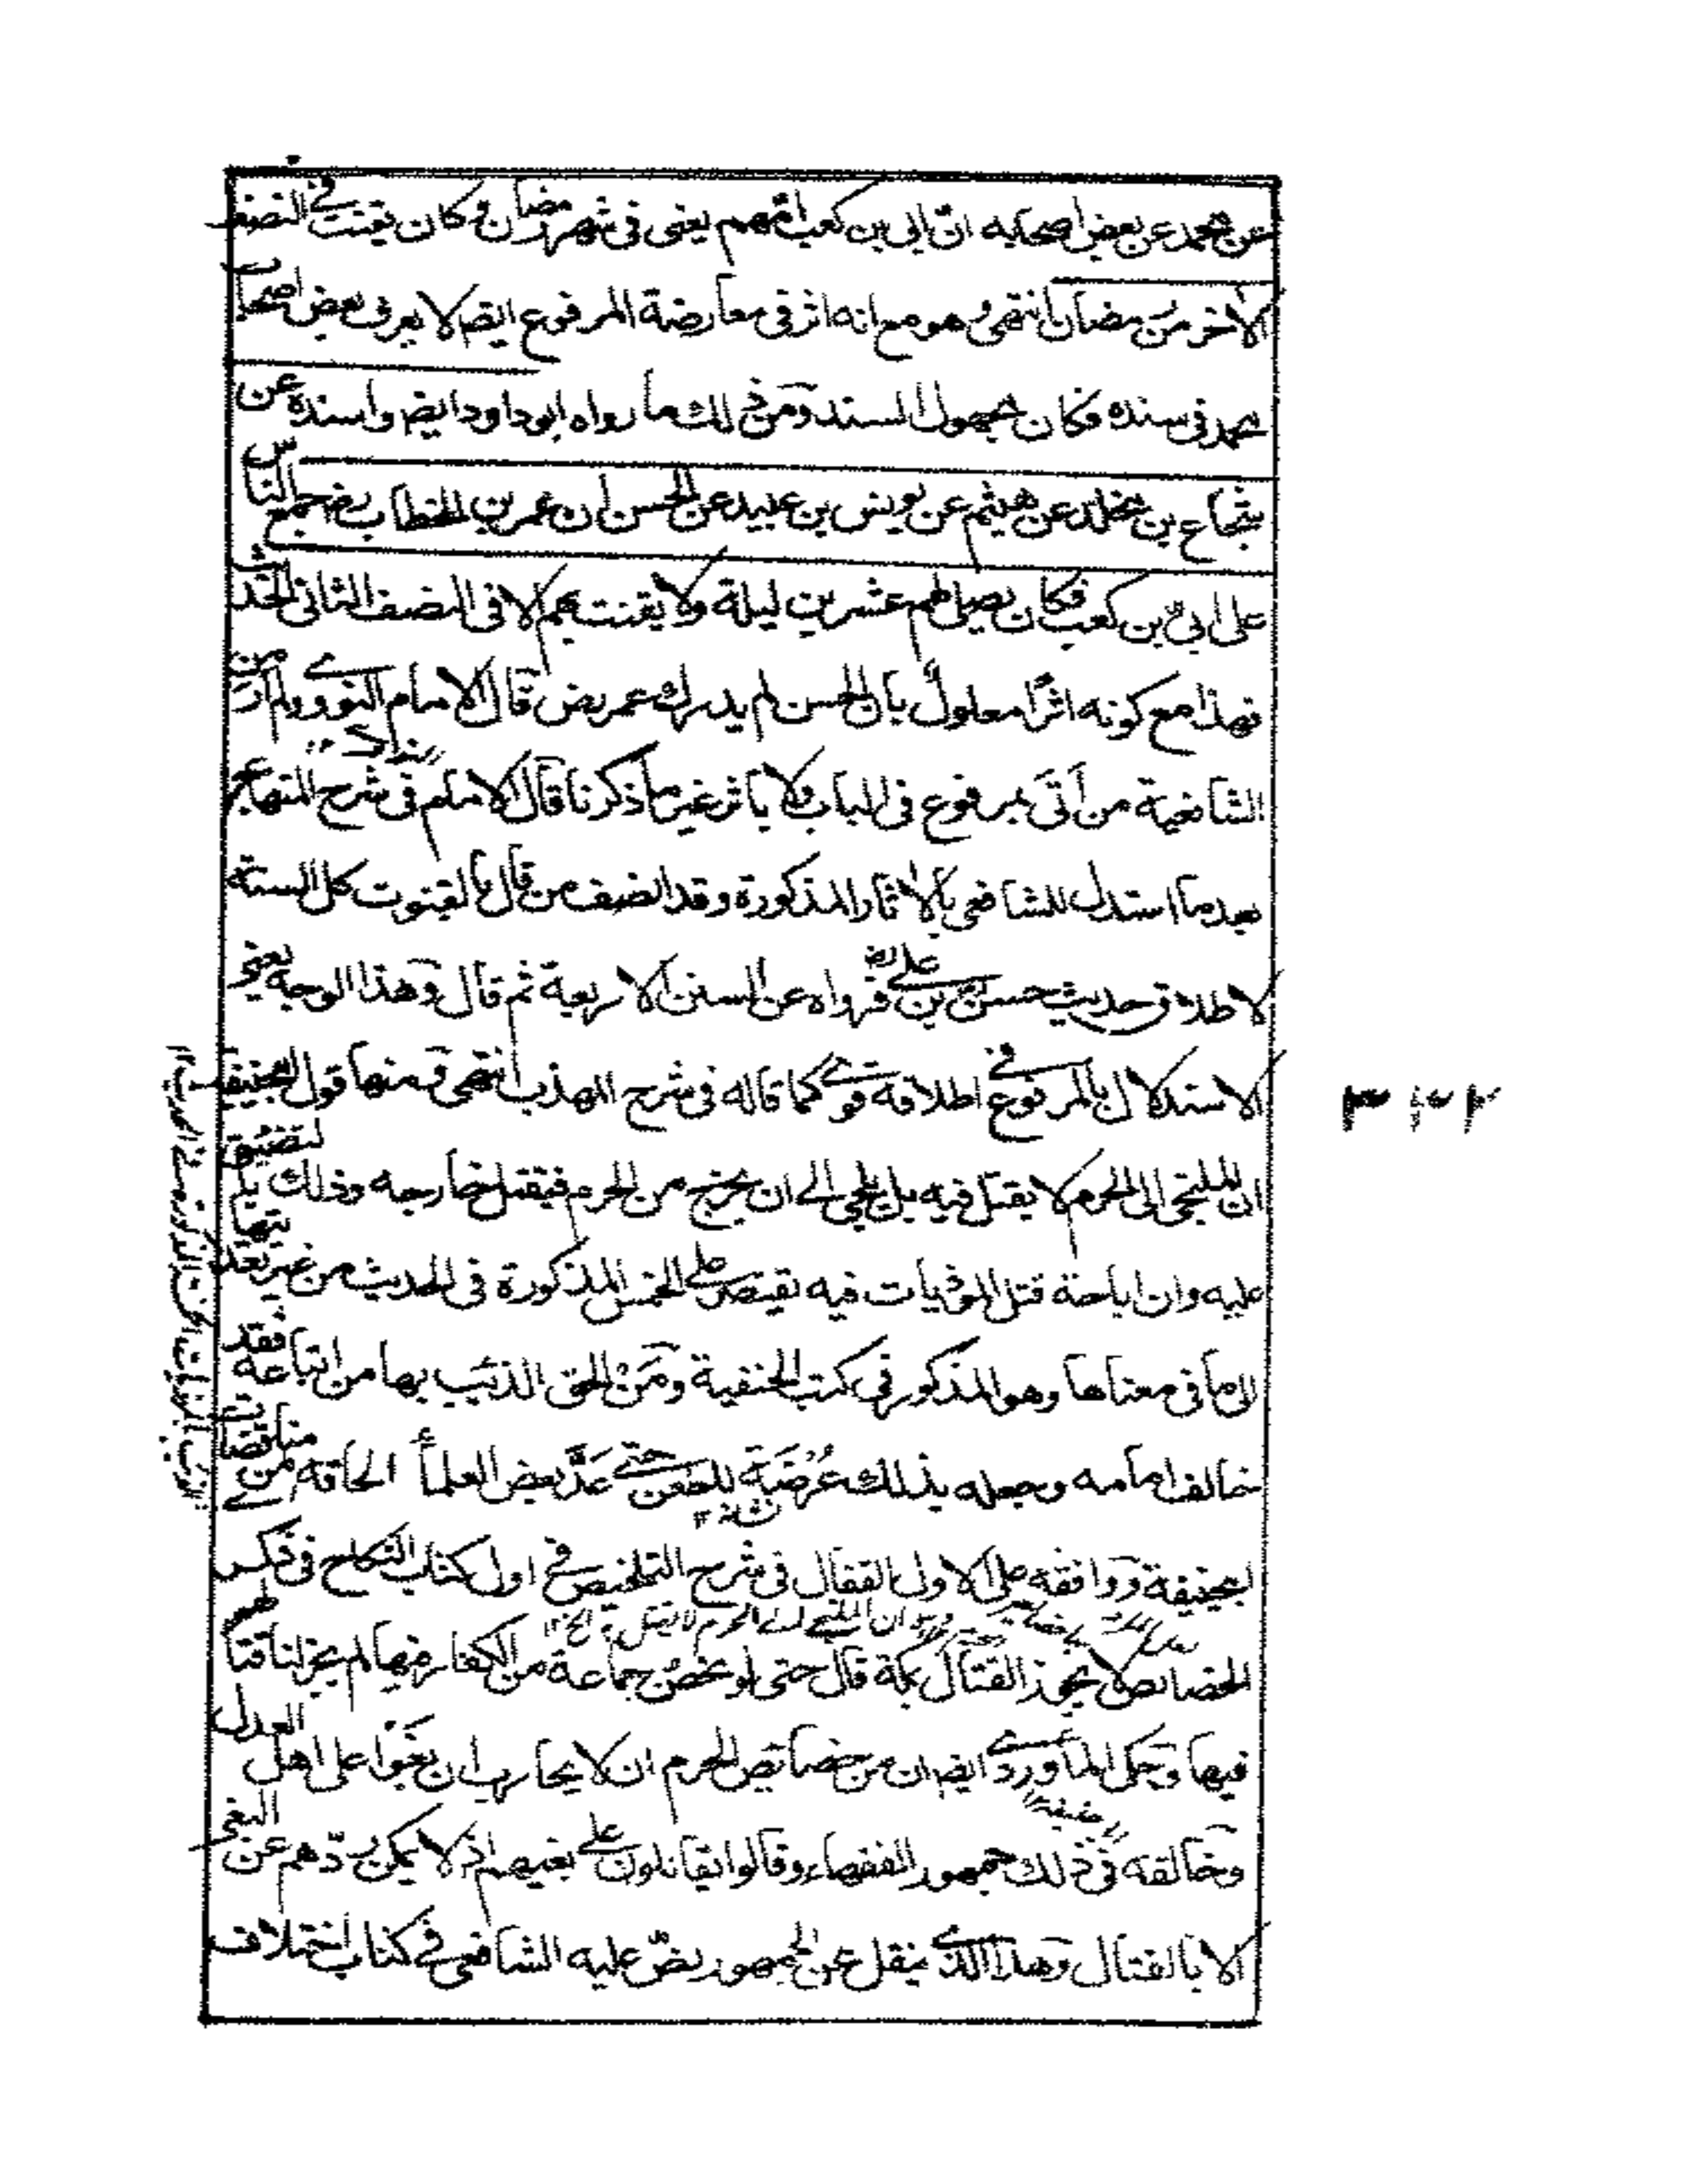 عن محمد عن بعض اصحابه انّ ابي بن كعب امّهم يعنى فى شهر رمضان وكان يقنت فى النصف
الاخر من رمضان انتهى وهو مع انه اثر فى معارضة المرفوع ايضا لا يعرف بعض اصحاب
محمد فى سنده فكان مجهول السند ومن ذلك ما رواه ابوداود ايضا واسنده عن
شجاع بن مخلد عن هيثم عن يونس بن عبيد عن الحسن ان عمر بن الخطاب رضـ جمع الناس
على ابىّ بن كعب فكان يصلى لهم عشرين ليلة ولا يقنت بهم الا فى النصف الثانى الحديث
فهذا مع كونه اثرًا معلولٌ بان الحسن لم يدرك عمر رضـ قال الامام النووى ولم ار من
الشافعية من اَتَى بمرفوع فى الباب ولا باثر غير ما ذكرنا قال الامام فى شرح المنهاج
بعد ما استدل للشافعى بالاثار المذكورة وقد انصف من قال بالقنوت كل السنة
لاطلاق حديث حسن بن على رضـ فرواه عن السنن الاربعة ثم قال وهذا الوجه يعنى
الاستدلال بالمرفوع فى اطلاقه قوى كما قاله فى شرح المهذب انتهى ومنها قول ابيحنيفة
ان الملتجى الى الحرم لا يقتل فيه بل يلجى الى ان يخرج من الحرم فيقتل خارجه وذلك بالتضييق
عليه وان اباحة قتل الموذيات فيه يقتصر على الخمس المذكورة فى الحديث من غير تعديتها
الى ما فى معناها وهو المذكور فى كتب الحنفية ومَنْ الحق الذئب بها من اتباعه فقد
خالف امامه وجعله بذلك عُرْضَة للطعن حتى عَدَّ بعض العلمأ الحاقه من مناقضات
ابيحنيفة ووافقه على الاول القفال فى شرح التلخيص فى اول كتاب النكاح فى ذكر
الخصائص لا يجوز القتال بمكة قال حتى لو تحصن جماعة من الكفار فيها لم يجز لنا قتالهم
فيها وحكى الماوردى ايضا ان من خصائص الحرم ان لا يحارب ان بغَوا على اهل العدل
وخالفه فى ذلك جمهور الفقهاء وقالوا يقاتلون على بغيهم اذ لا يمكن ردّهم عن البغى
الا بالقتال وهذا الذى ينقل عن الجمهور نصّ عليه الشافعى فى كتاب اختلاف